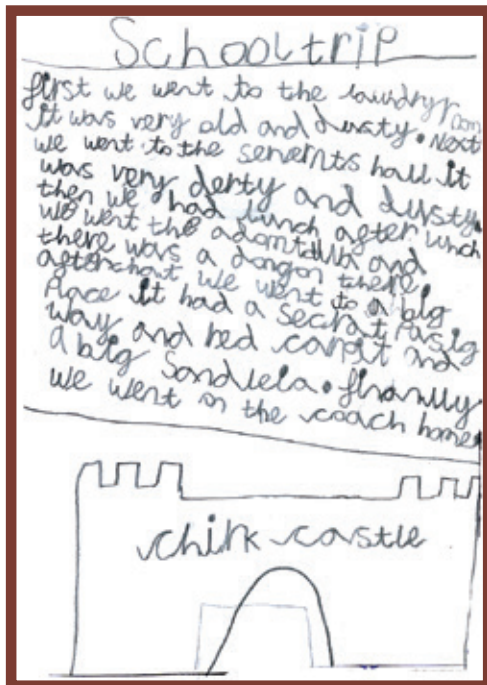 School trip
first we went to the laundry room
it was very old and dusty. Next
we went to the servernts hall it
was very derty and dusty.
then we had lunch after lunch
we went the and
there was a dongon there.
after we went to a big
Place it had a secrat pasig
way and red carpit and
a big . finanlly
we went on the coach home
chirk castle